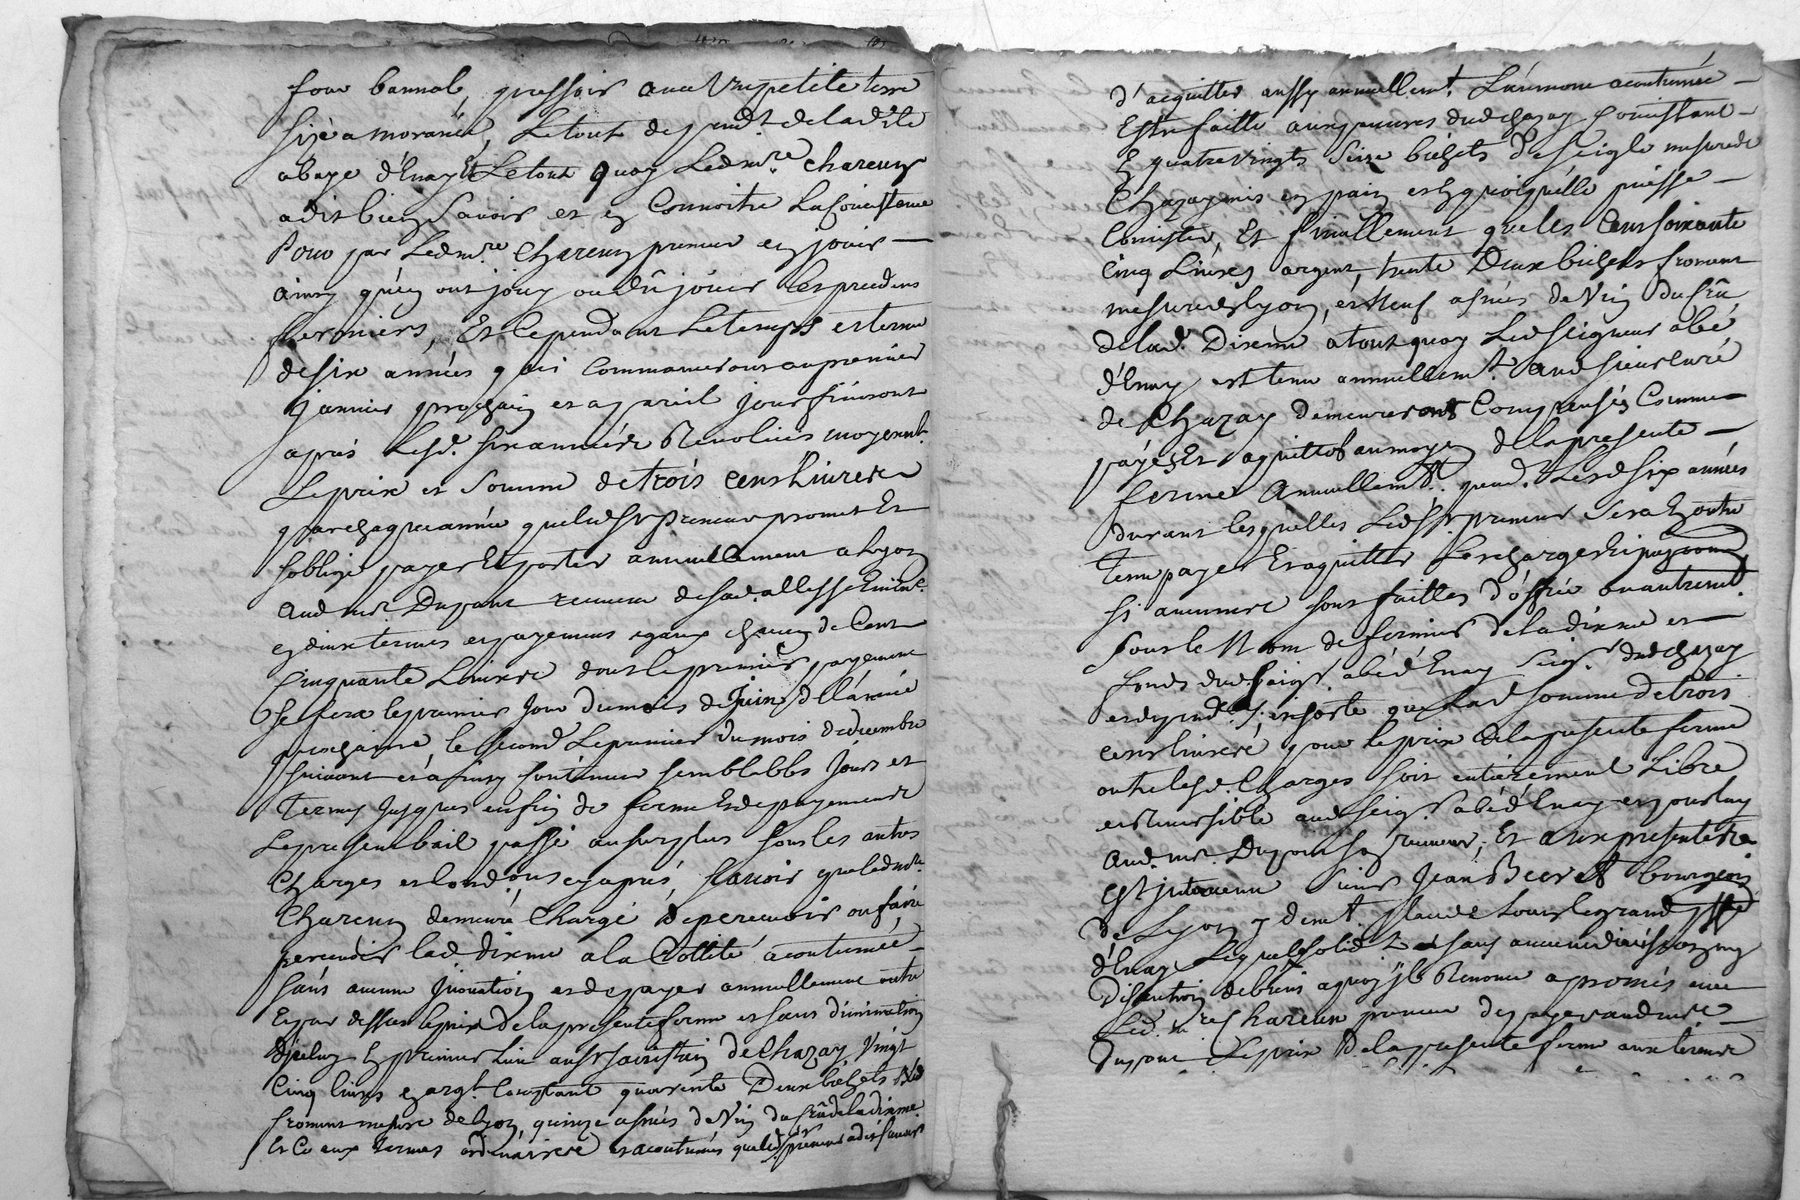 four bannal, pressoir avec une petite terre
size a morancé, Le tout depend.t de lad.ite
abaye d'Enay Et Le tout quoy Led m.re chareun
a dit bien Savoir et en Connoitre La Consistance
Pour par Led m.re Chareun preneur en jouir
ainsy qu'en ont jouy ou dû jouir les precedens
fermiers, Et Cependant Le temps et terme
de six années qui Commanceront au premier
janvier prochain et a pareil jour finiront
après Lesd. six années Revolues moyenant
Le prix et Somme de trois Cens Livres
par chaque année que led s.r Preneur promet Et
soblige payer Et porter annuellement a Lyon
aud m.r Dupont receveur de sad. altesse Eminc.
en deux termes et payemens egaux chacun de Cent
Cinquante Livres dont le premier payement
se fera le premier Jour du mois de Juin de l'année
prochaine le second Le premier du mois de decembre
suivant et ainsy continuer semblables Jours et
termes jusques en fin de ferme Et de payement
Le present bail passé au surplus sous les autres
Charges et Conditions cy après, sçavoir que led m.re
Chareun demeure Chargé de percevoir ou faire
percevoir lad dixme a la Cottité acoutumée
sans aucune Inovation et de payer annullement outre
Et par dessus le prix de la presente ferme et sans diminution
d'iceluy En premier Lieu au s.r sacristain de Chazay Vingt
Cinq livres en arg.t Comptant quarente Deux bichets bled
froment mesure de Lyon, quinze asnées de Vin du crû de la dixme
Et Ce aux termes ordinaires et acoutumés que led s.r preneur a dit sçavoir
d'acquitter aussy annuellem.t L'aumone acoutumée
Estre faitte aux pauvres dud chazay Consistant
En quatre vingts Seize bichets De Seigle mesure de
Chazay mis en pain et En quoi qu'elle puisse
Consister, Et finallement que les Cent soixante
Cinq Livres argent, trente Deux bichets froment
mesure de Lyon, et Neuf asnées de Vin du crû
de lad. Dixme a tout quoy Led Seigneur abé
d'Enay est tenu annuellem.t aud sieur Curé
de Chazay demeureront Compensés Comme
payés Et aquittés au moyen de la presente
ferme Annuellem.t pend. Lesd six années
durant lesquelles Led s.r preneur sera En outre
tenu payer Et aquitter Les charges Et impositions
si aucunes sont faittes d'office ou autrem.t
sous le Nom de fermier de la dixme et
fonds dud. seig.r abé d'Enay Seig.r dud chazay
et depend.s ; en sorte que Lad somme de trois
cens livres pour le prix de la presente ferme
outre lesd. Charges soit entierement Libre
et Remisible aud seig.r abé d'Enay et pour luy
Aud. m.r Dupont son receveur, Et aux presentes
Est intervenu Sieur Jean bourgeois
de Lyon y demt place Louis le grand psse
d'Enay Lequel solid.t sans aucune division ny
Discution de biens a quoy il Renonce a promis avec
Led. m.re Chareun preneur de payer aud m.r
Dupont Le prix De la presente ferme aux termes